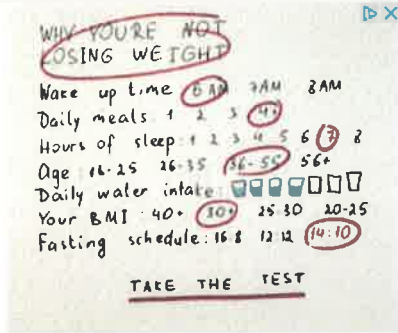 WHY YOU'RE NOT
LOSING WEIGHT
Wake up time 6 AM 7AM 8AM
Daily meals 1 2 3 4+
Hours of sleep: 1 2 3 4 5 6 7 8
Age: 16-25 26-35 36-55 56+
Daily water intake:
Your BMI: 40+ 30+ 25-30 20-25
Fasting schedule: 16:8 12:12 14:10
TAKE THE TEST